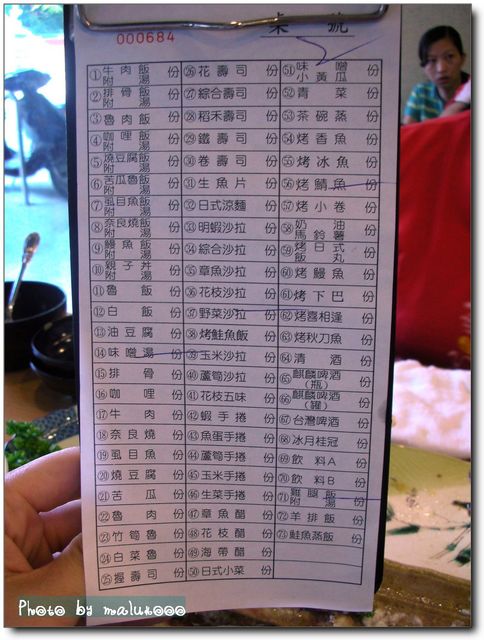 桌 號
000684
①牛肉飯附湯 份
②排骨飯附湯 份
③魯肉飯 份
④咖哩飯附湯 份
⑤燒豆腐飯附湯 份
⑥苦瓜魯飯附湯 份
⑦虱目魚飯附湯 份
⑧奈良燒飯附湯 份
⑨鰻魚飯附湯 份
⑩親子丼附湯 份
⑪魯飯 份
⑫白飯 份
⑬油豆腐 份
⑭味噌湯 份
⑮排骨 份
⑯咖哩 份
⑰牛肉 份
⑱奈良燒 份
⑲虱目魚 份
⑳燒豆腐 份
㉑苦瓜 份
㉒魯肉 份
㉓竹筍魯 份
㉔白菜魯 份
㉕握壽司 份
㉖花壽司 份
㉗綜合壽司 份
㉘稻禾壽司 份
㉙鐵壽司 份
㉚卷壽司 份
㉛生魚片 份
㉜日式涼麵 份
㉝明蝦沙拉 份
㉞綜合沙拉 份
㉟章魚沙拉 份
㊱花枝沙拉 份
㊲野菜沙拉 份
㊳烤鮭魚飯 份
㊴玉米沙拉 份
㊵蘆筍沙拉 份
㊶花枝五味 份
㊷蝦手捲 份
㊸魚蛋手捲 份
㊹蘆筍手捲 份
㊺玉米手捲 份
㊻生菜手捲 份
㊼章魚醋 份
㊽花枝醋 份
㊾海帶醋 份
㊿日式小菜 份
51味噌小黃瓜 份
52青菜 份
53茶碗蒸 份
54烤香魚 份
55烤冰魚 份
56烤鯖魚 份
57烤小卷 份
58奶油馬鈴薯 份
59烤日式飯丸 份
60烤鰻魚 份
61烤下巴 份
62烤喜相逢 份
63烤秋刀魚 份
64清酒 份
65麒麟啤酒(瓶) 份
66麒麟啤酒(罐) 份
67台灣啤酒 份
68冰月桂冠 份
69飲料A 份
70飲料B 份
71雞腿飯附湯 份
72羊排飯 份
73鮭魚蒸飯 份
Photo by malu1000